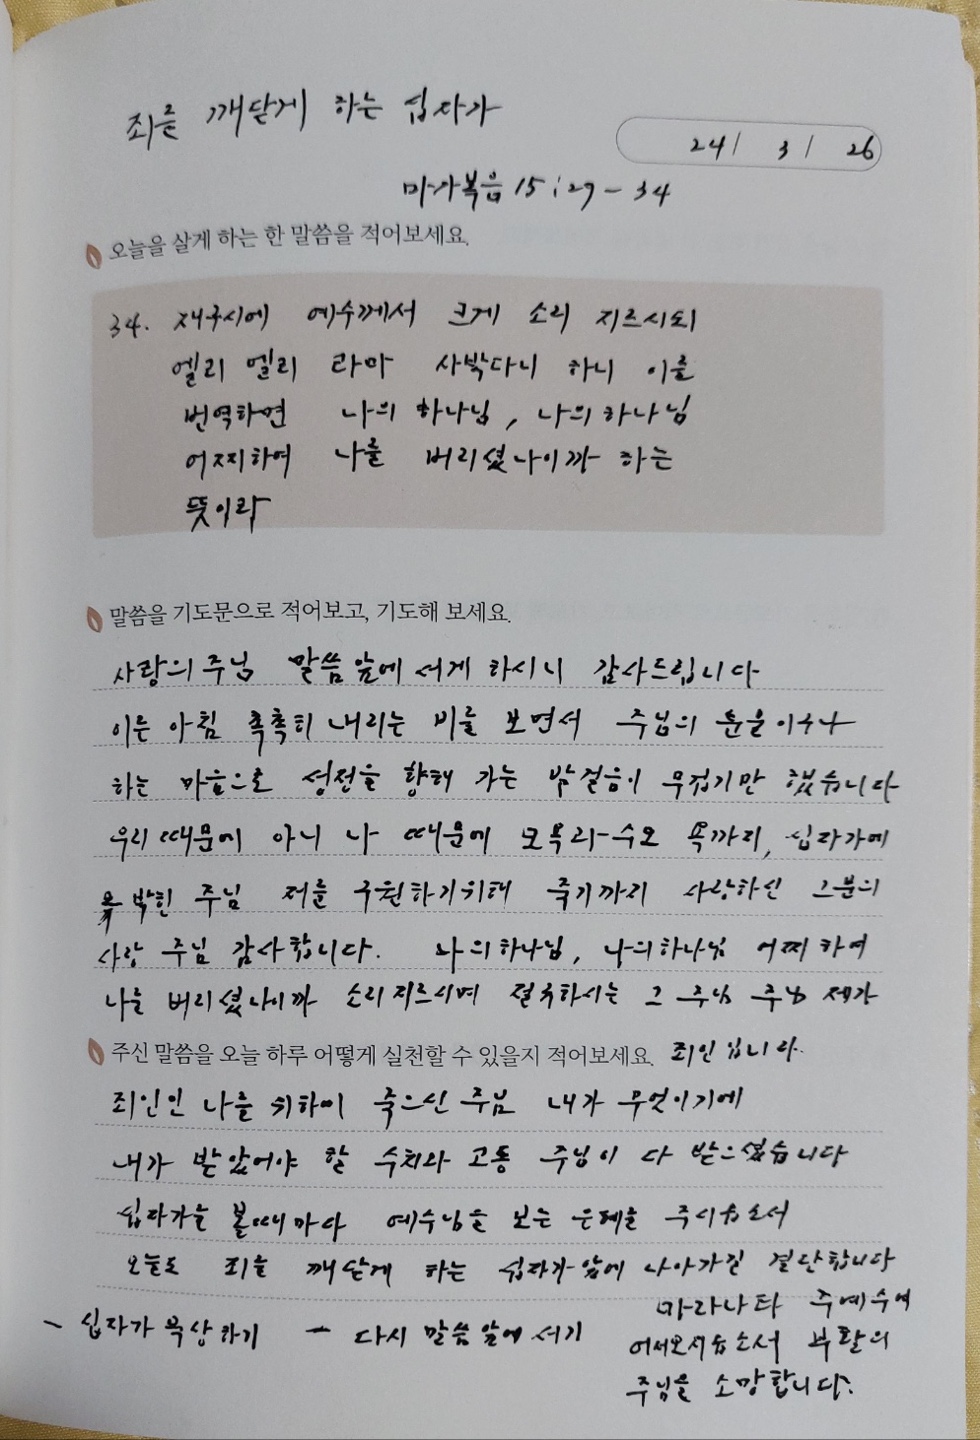 죄를 깨닫게 하는 십자가
24 / 3 / 26
마가복음 15:29-34
오늘을 살게 하는 한 말씀을 적어보세요.
34. 제구시에 예수께서 크게 소리 지르시되
엘리 엘리 라마 사박다니 하니 이를
번역하면 나의 하나님, 나의 하나님
어찌하여 나를 버리셨나이까 하는
뜻이라
말씀을 기도문으로 적어보고, 기도해 보세요.
사랑의 주님 말씀 앞에 서게 하시니 감사드립니다
이른 아침 촉촉히 내리는 비를 보면서 주님의 눈물이구나
하는 마음으로 성전을 향해 가는 발걸음이 무겁기만 했습니다
우리 때문에 아니 나 때문에 모욕과 수모 욕까지, 십자가에
못 박힌 주님 저를 구원하기위해 죽기까지 사랑하신 그분의
사랑 주님 감사합니다. 나의 하나님, 나의 하나님 어찌 하여
나를 버리셨나이까 소리 지르시며 절규하시는 그 주님 주님 제가
주신 말씀을 오늘 하루 어떻게 실천할 수 있을지 적어보세요. 죄인 입니다.
죄인인 나를 위하여 죽으신 주님 내가 무엇이기에
내가 받았어야 할 수치와 고통 주님이 다 받으셨습니다
십자가를 볼때마다 예수님을 보는 은혜를 주시옵소서
오늘도 죄를 깨닫게 하는 십자가 앞에 나아가길 결단합니다
마라나타 주예수여
- 십자가 묵상하기 - 다시 말씀 앞에 서기
어서오시옵소서 부활의
주님을 소망합니다.